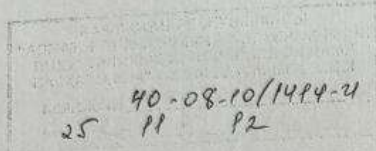 40-08-10/1414-21
25 11 12